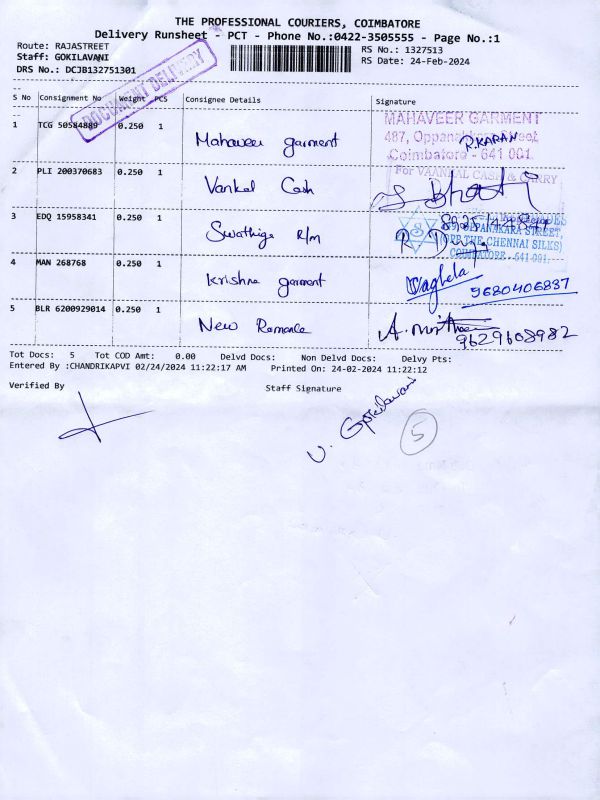 THE PROFESSIONAL COURIERS, COIMBATORE
Delivery Runsheet - PCT - Phone No.:0422-3505555 - Page No.:1
Route: RAJASTREET
RS No.: 1327513
Staff: GOKILAVANI
RS Date: 24-Feb-2024
DRS No.: DCJB132751301
DOCUMENT DELIVERY
S No Consignment No Weight PCS Consignee Details Signature
1 TCG 50584889 0.250 1 Mahaveer garment
MAHAVEER GARMENT
487, Oppanakkara Street
R.KARAN
Coimbatore - 641 001.
2 PLI 200370683 0.250 1 Vankal Cash
For VAANKAL CASH & CARRY
3 EDQ 15958341 0.250 1 Swathiga R/m
OPPANAKARA STREET,
(OPP. THE CHENNAI SILKS)
COIMBATORE - 641 001.
4 MAN 268768 0.250 1 Krishna garment
Vaghela
9680406837
5 BLR 6200929014 0.250 1 New Romance
9629608982
Tot Docs: 5 Tot COD Amt: 0.00 Delvd Docs: Non Delvd Docs: Delvy Pts:
Entered By :CHANDRIKAPVI 02/24/2024 11:22:17 AM Printed On: 24-02-2024 11:22:12
Verified By Staff Signature
V. Gokilavani
5